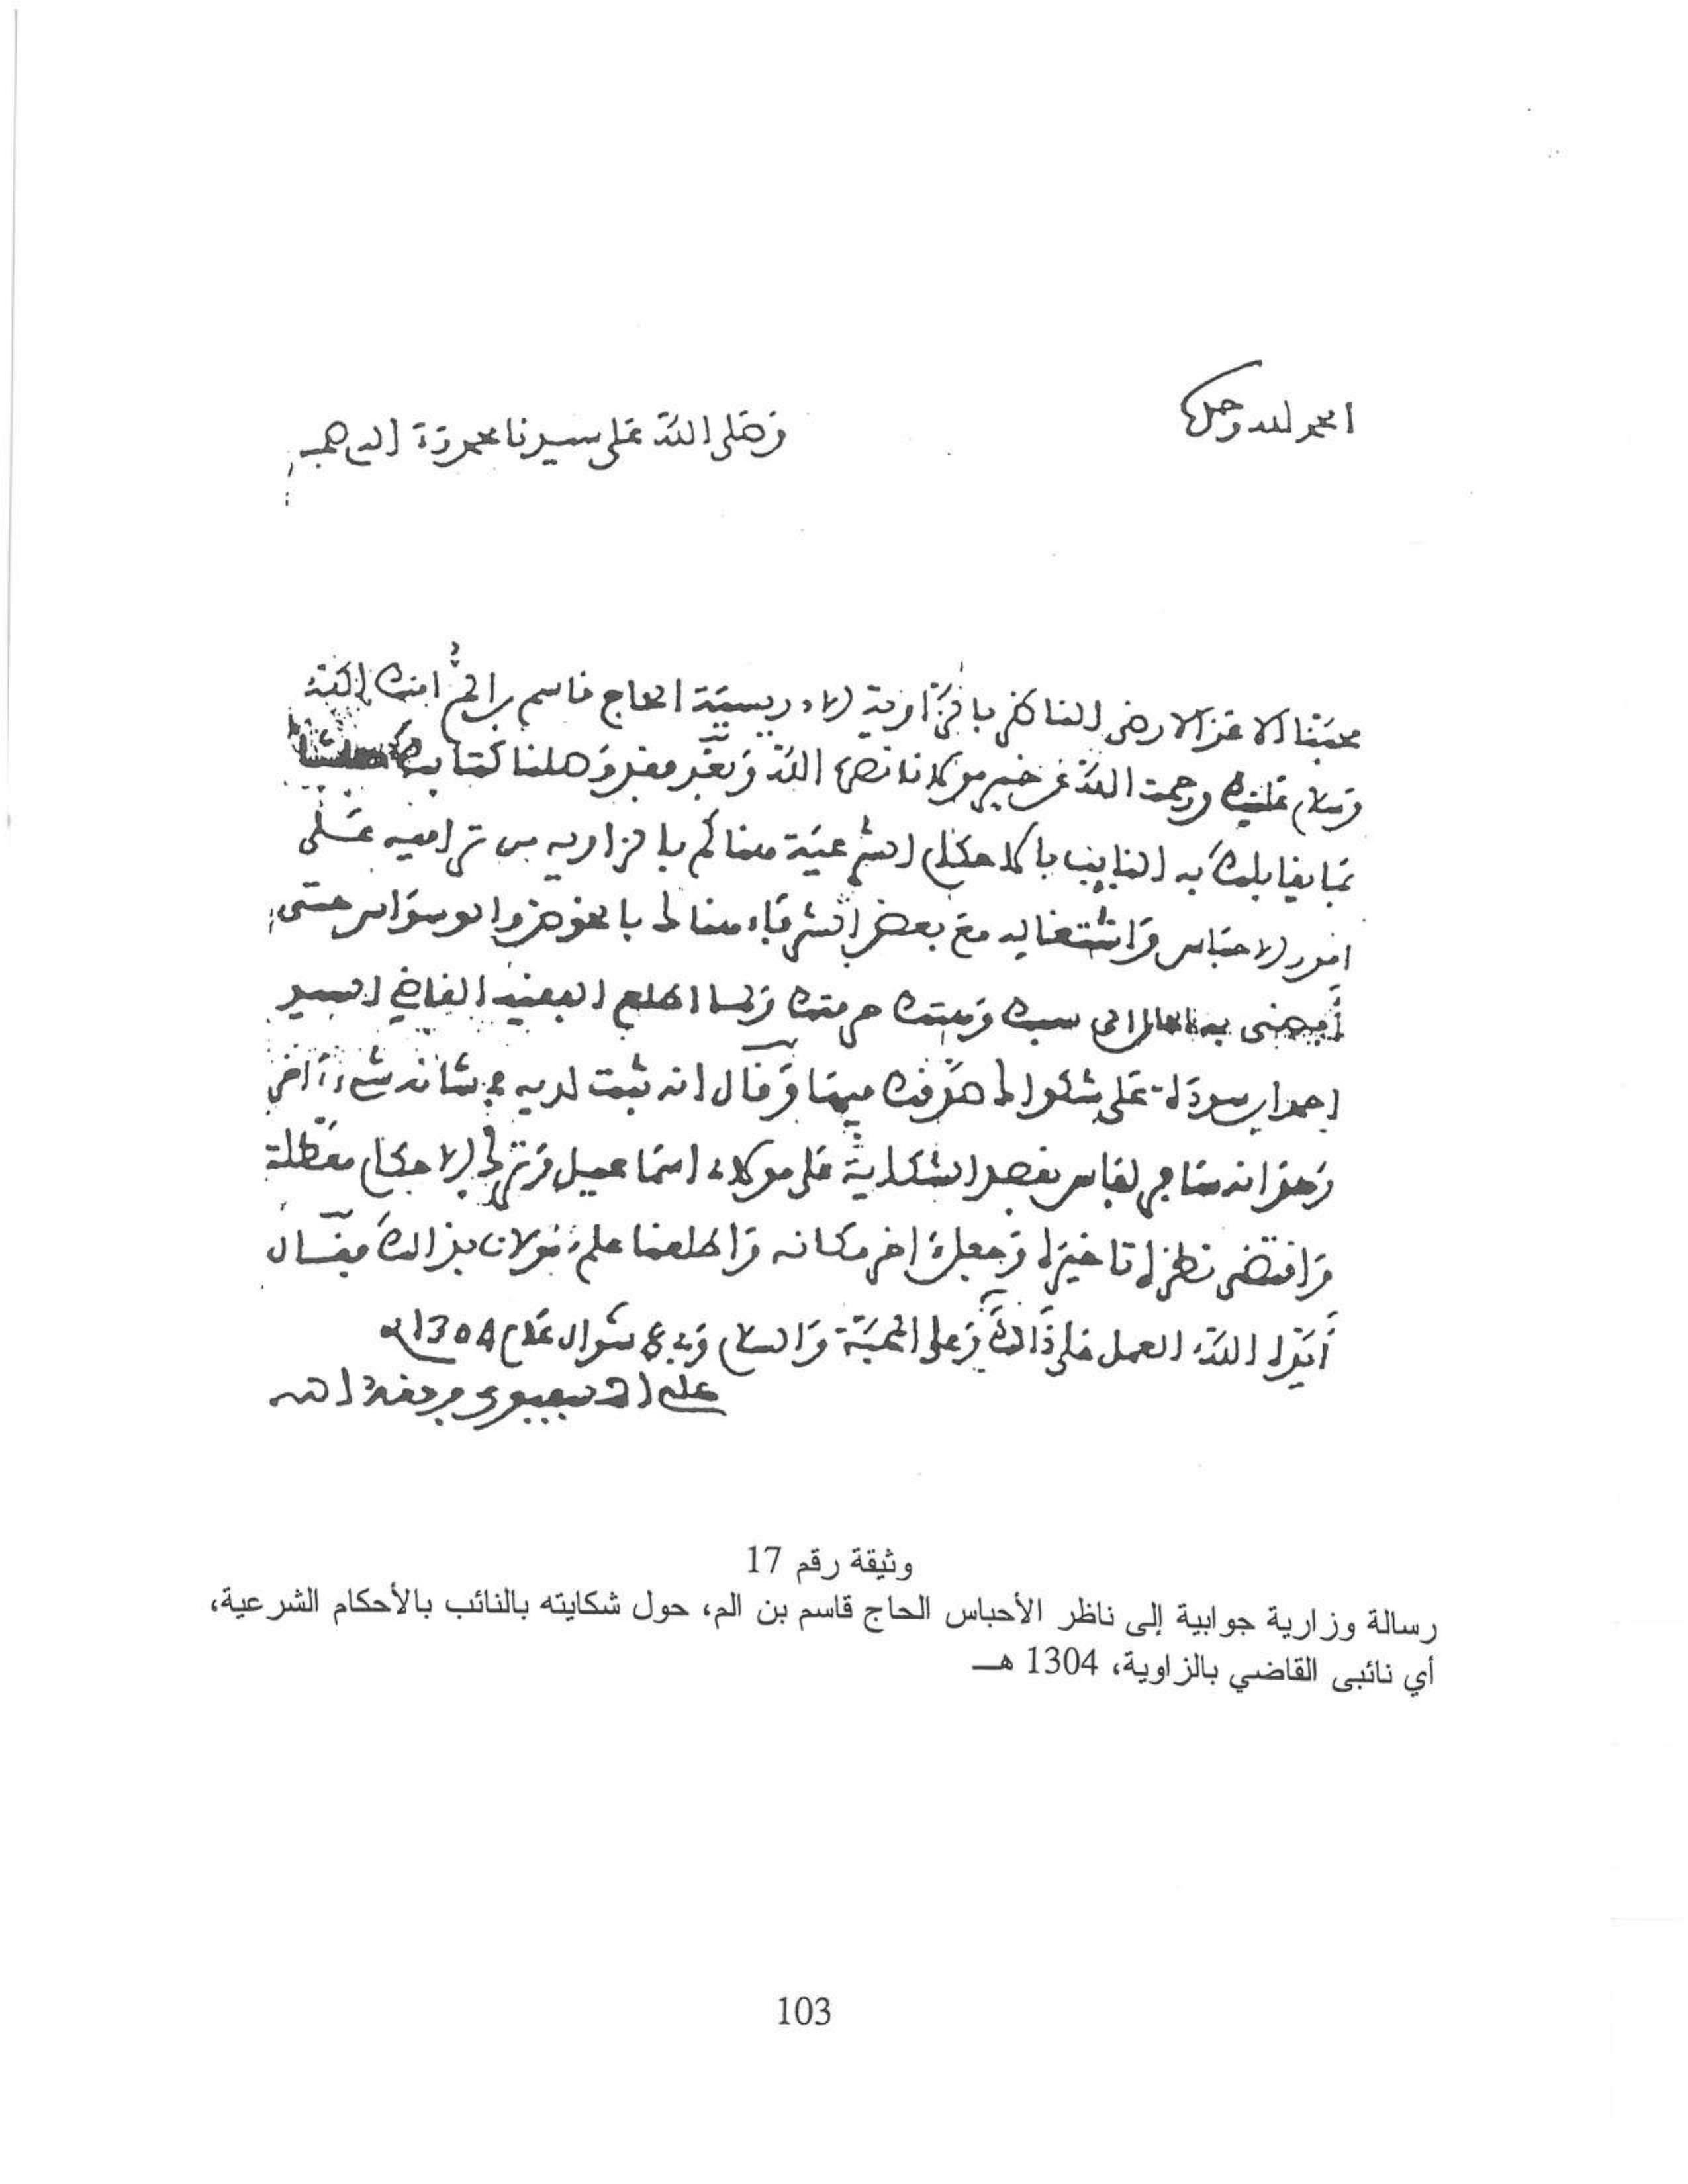 الحمد لله وحده
وصلى الله على سيدنا محمد وءاله وصحبه
محبنا الاعز الارضى الناظر بالزاوية الادريسية الحاج قاسم بن الم امنك الله
وسلام عليك ورحمت الله عن خير مولانا نصره الله وبعد فقد وصلنا كتابك
بما يقابلك به النايب بالاحكام الشرعية هناكم بالزاوية من تراميه على
امور الاحباس واشتغاله مع بعض الشرفاء هناك بالخوض والوسواس حتى
أفضى به الحال الى سبك وهتك حرمتك ولما اطلع الفقيه القاضي السيد
احمد ابن سودة على شكواك صدقك فيها وقال انه ثبت لديه في شانه شيء ءاخر
وهو انه سافر لفاس بقصد الشكاية على مولاي اسماعيل وترك الاحكام معطلة
واقتضى نظره تاخيره وجعل ءاخر مكانه واطلعنا علم مولانا بذالك فقال
أيده الله العمل على ذالك وعلى المحبة والسلام في 8 شوال عام 1304
علي المسفيوي وفقه الله
وثيقة رقم 17
رسالة وزارية جوابية إلى ناظر الأحباس الحاج قاسم بن الم، حول شكايته بالنائب بالأحكام الشرعية،
أي نائبى القاضي بالزاوية، 1304 هـ
103